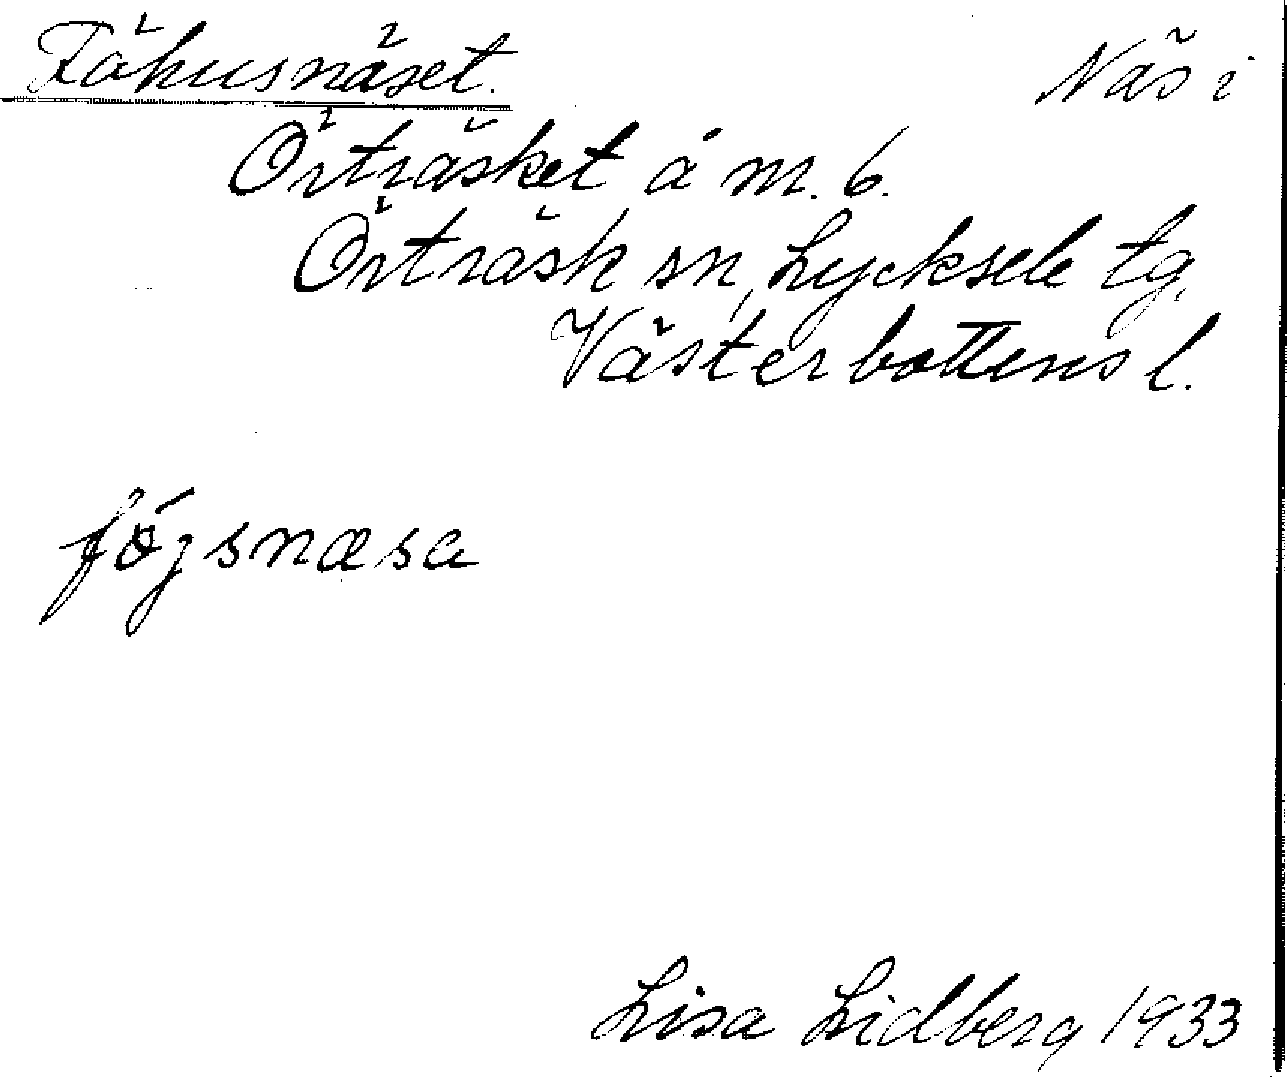 Fähusnäset. Näs i
Örträsket å m. 6.
Örträsk sn, Lycksele tg,
Västerbottens l.
fǿʒsnæsa
Lisa Lidberg 1933